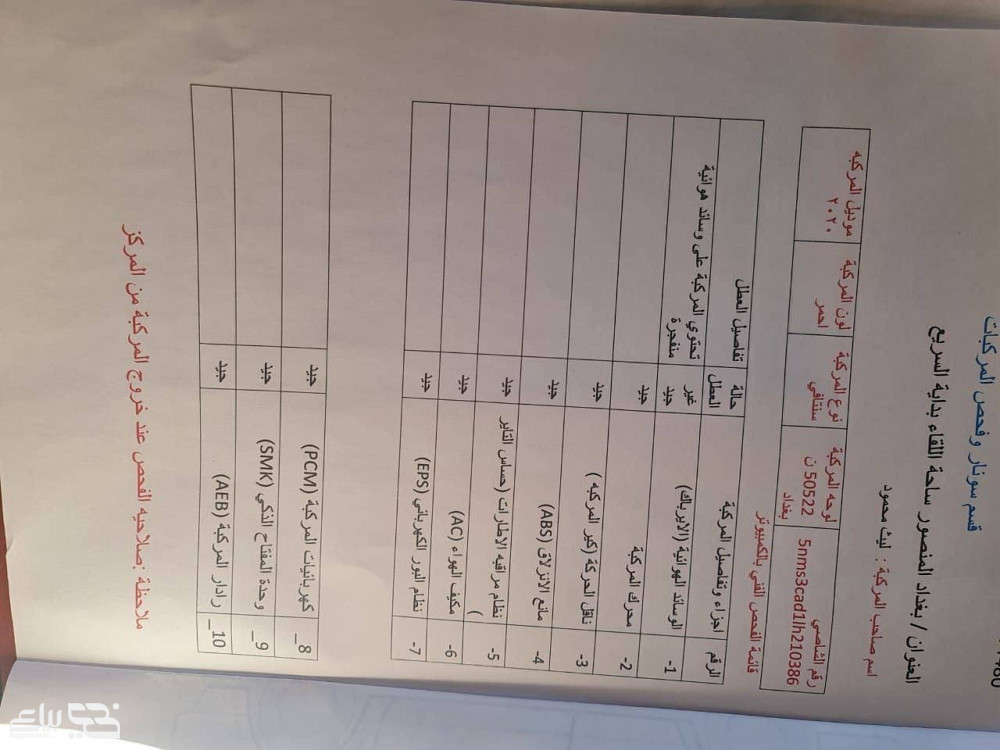 قسم سونار وفحص المركبات
العنوان / بغداد المنصور ساحة اللقاء بداية السريع
اسم صاحب المركبة : ليث محمود
رقم الشاصي 5nms3cad1lh210386
لوحه المركبة 50522 ن بغداد
نوع المركبة سنتافي
لون المركبة احمر
موديل المركبه ٢٠٢٠
قائمة الفحص الفني بالكمبيوتر
الرقم اجزاء وتفاصيل المركبة حالة العطل تفاصيل العطل
1- الوسائد الهوائية (الايرباك) غير جيد تحتوي المركبة على وسائد هوائية منفجرة
2- محرك المركبة جيد
3- ناقل الحركة (كير المركبه ) جيد
4- مانع الانزلاق (ABS) جيد
5- نظام مراقبه الاطارات (حساس التاير ) جيد
6- مكيف الهواء (AC) جيد
7- نظام البور الكهربائي (EPS) جيد
8_ كهربائيات المركبة (PCM) جيد
9_ وحدة المفتاح الذكي (SMK) جيد
10_ رادار المركبة (AEB) جيد
ملاحظة :صلاحيه الفحص عند خروج المركبة من المركز